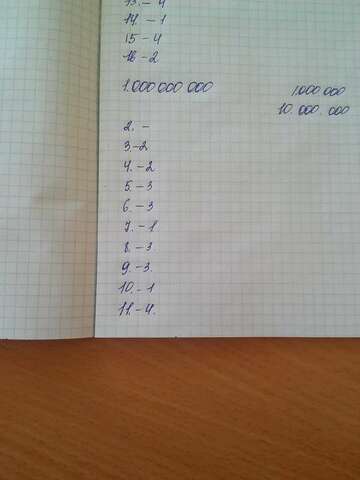 13. - 4
14. - 1
15 - 4
16 - 2
1.000 000 000
1.000 000
10. 000. 000
2. -
3.-2
4. - 2
5. - 3
6. - 3
7. - 1
8. - 3
9. - 3.
10. - 1
11. - 4.